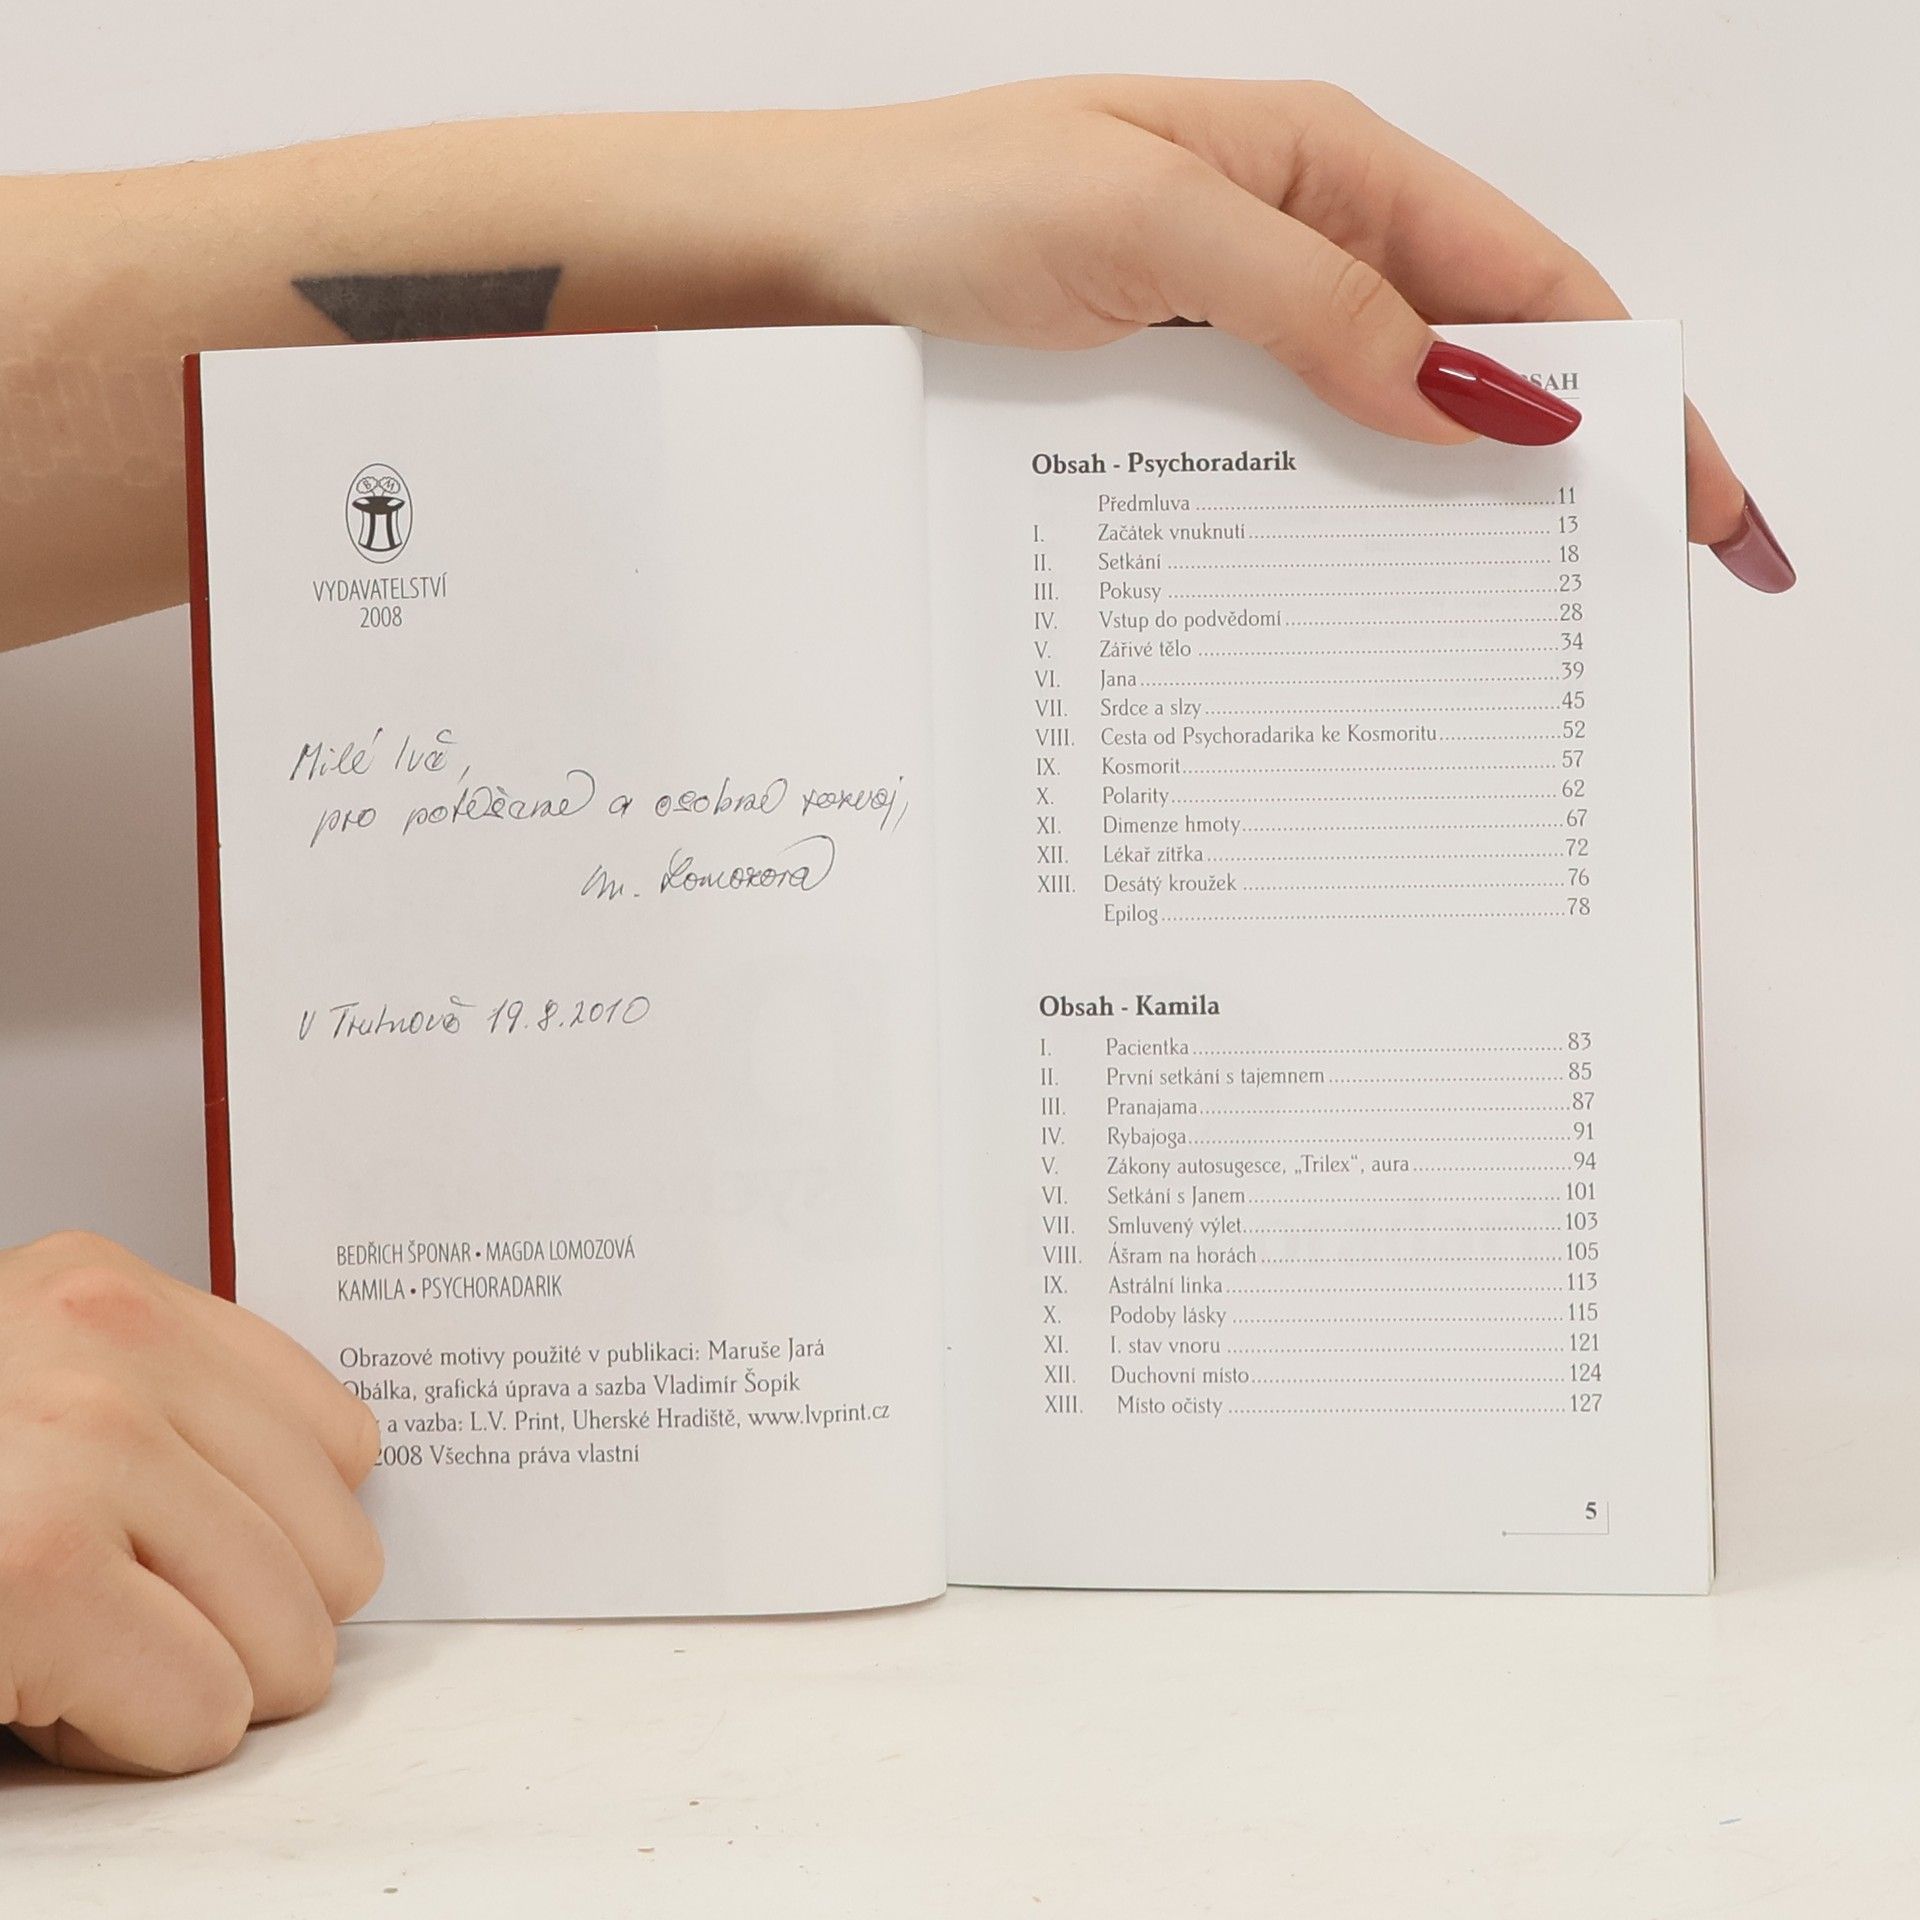 B M
VYDAVATELSTVÍ
2008
Milé Ivě,
pro potěšení a osobní rozvoj,
M. Lomozová
V Trutnově 19.8.2010
BEDŘICH ŠPONAR • MAGDA LOMOZOVÁ
KAMILA • PSYCHORADARIK
Obrazové motivy použité v publikaci: Maruše Jará
Obálka, grafická úprava a sazba Vladimír Šopík
a vazba: L.V. Print, Uherské Hradiště, www.lvprint.cz
2008 Všechna práva vlastní
SAH
Obsah - Psychoradarik
Předmluva 11
I. Začátek vnuknutí 13
II. Setkání 18
III. Pokusy 23
IV. Vstup do podvědomí 28
V. Zářivé tělo 34
VI. Jana 39
VII. Srdce a slzy 45
VIII. Cesta od Psychoradarika ke Kosmoritu 52
IX. Kosmorit 57
X. Polarity 62
XI. Dimenze hmoty 67
XII. Lékař zítřka 72
XIII. Desátý kroužek 76
Epilog 78
Obsah - Kamila
I. Pacientka 83
II. První setkání s tajemnem 85
III. Pranajama 87
IV. Rybajoga 91
V. Zákony autosugesce, „Trilex“, aura 94
VI. Setkání s Janem 101
VII. Smluvený výlet 103
VIII. Ášram na horách 105
IX. Astrální linka 113
X. Podoby lásky 115
XI. I. stav vnoru 121
XII. Duchovní místo 124
XIII. Místo očisty 127
5